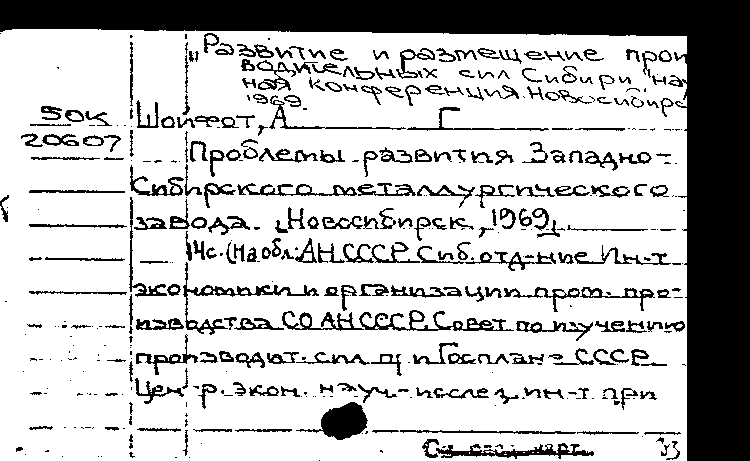 „Развитие и размещение прои
водительных сил Сибири" нау
ная конференция. Новосибирс
1969.
50К Шойфот, А. Г
20607
Проблемы развития Западно-
Сибирского металлургического
завода. [Новосибирск, 1969].
14с. (На обл: АН СССР. Сиб. отд-ние Ин-т
экономики и организации пром. про-
изводства СО АН СССР. Совет по изучению
производит. сил при Госплане СССР.
Цен-р. экон. науч.-исслед. ин-т при
См. след. карт. 33